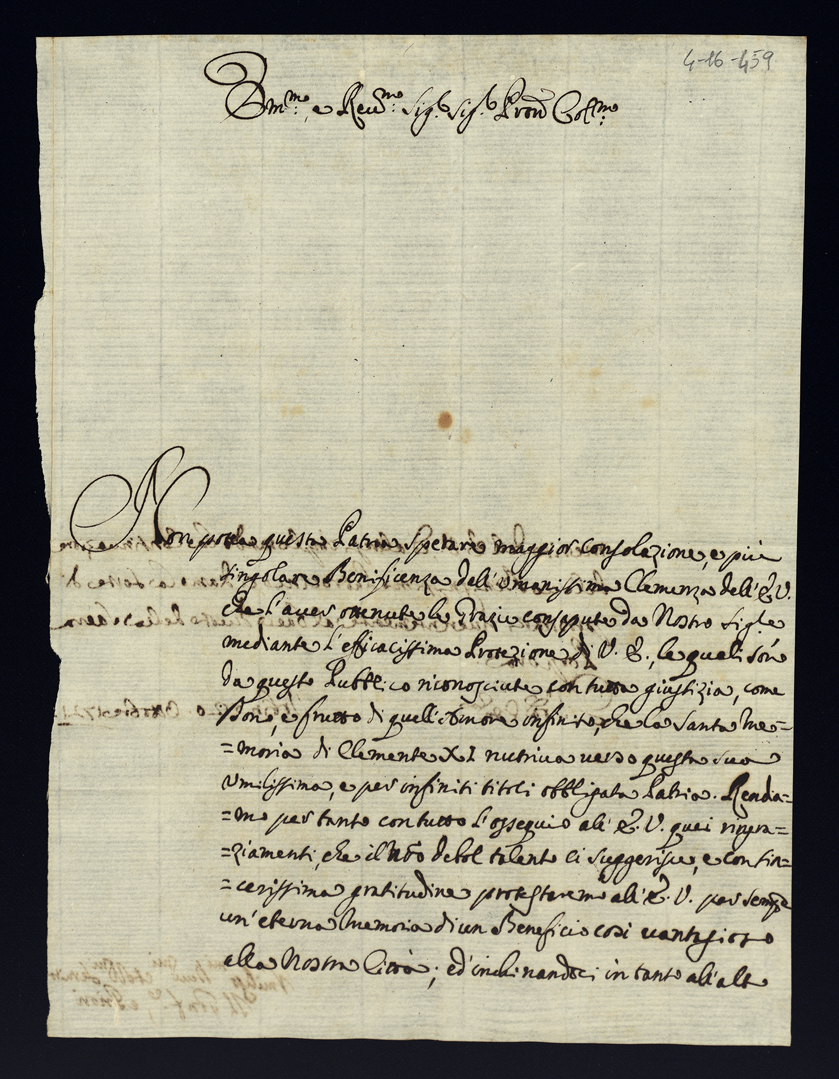 4-16-459
Em.mo, e Reu.mo Sig.r Sig.r Pron Col.mo
Non potea questa Patria sperare maggior consolazione, e più
singolare Beneficenza dell'Vmanissima Clemenza dell'E.V.
che l'auer ottenute le Grazie conseguite da Nostro Sig.re
mediante l'efficacissima Protezione di V. E., le quali son
da questo Pubblico riconosciute con tutta giustizia, come
Dono, e frutto di quell'Amore infinito, che la Santa Me=
=moria di Clemente XI nutriua uerso questa sua
Vmilissima, e per infiniti titoli obbligata Patria. Rendia=
=mo per tanto con tutto l'ossequio all'E.V. quei ringra=
=ziamenti, che il nro debol talento ci suggerisce, e con sin=
=cerissima gratitudine protesteremo all'E.V. per sempre
un'eterna Memoria di un Beneficio così uantagioso
alla Nostra Città; ed inchinandoci in tanto all'alt